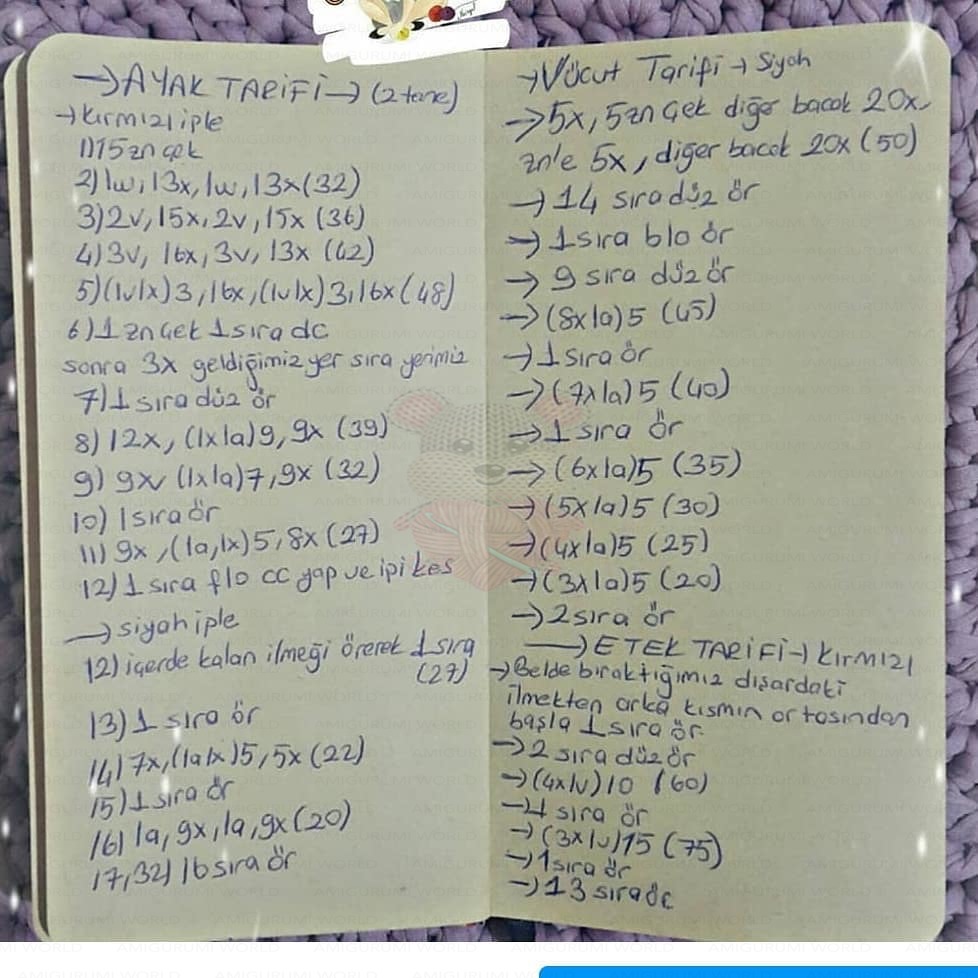 →AYAK TARİFİ→(2 tane)
→kırmızı iple
1)15 zn çek
2)1w,13x,1w,13x(32)
3)2v,15x,2v,15x(36)
4)3v, 16x,3v,13x (42)
5)(1v1x)3,16x,(1v1x)3,16x(48)
6)1 zn çek 1 sıra dc
sonra 3x geldiğimiz yer sıra yerimiz
7)1 sıra düz ör
8)12x, (1x1a)9, 9x (39)
9) 9x, (1x1a)7,9x (32)
10) 1 sıra ör
11) 9x,(1a,1x)5,8x(27)
12)1 sıra flo cc yap ve ipi kes
→siyah iple
12) içerde kalan ilmeği örerek 1 sıra
(27)
13)1 sıra ör
14)7x,(1a1x)5,5x(22)
15)1 sıra ör
16)1a,9x,1a,9x(20)
17,32)16 sıra ör
→Vücut Tarifi→Siyah
→5x,5zn çek diğer bacak 20x
zn'le 5x, diğer bacak 20x(50)
→14 sıra düz ör
→1 sıra blo ör
→9 sıra düz ör
→(8x1a)5 (45)
→1 sıra ör
→(7x1a)5 (40)
→1 sıra ör
→(6x1a)5 (35)
→(5x1a)5 (30)
→(4x1a)5 (25)
→(3x1a)5 (20)
→2 sıra ör
→ETEK TARİFİ→kırmızı
→Belde bıraktığımız dışardaki
ilmekten arka kısmın ortasından
başla 1 sıra ör.
→2 sıra düz ör
→(4x1v)10 (60)
→4 sıra ör
→(3x1v)15 (75)
→1 sıra ör
→13 sıra ör
AMIGURUMI WORLD